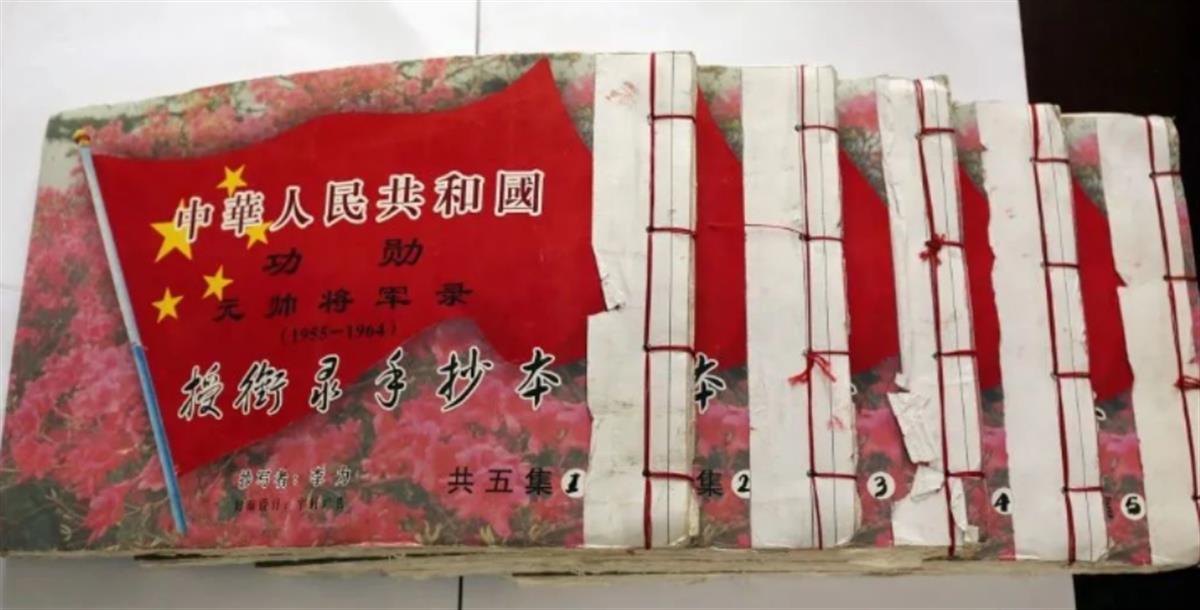 中華人民共和國
功勋
元帅将军录
(1955-1964)
授衔录手抄本
抄写者：李力
共五集1
本
集2
3
4
5